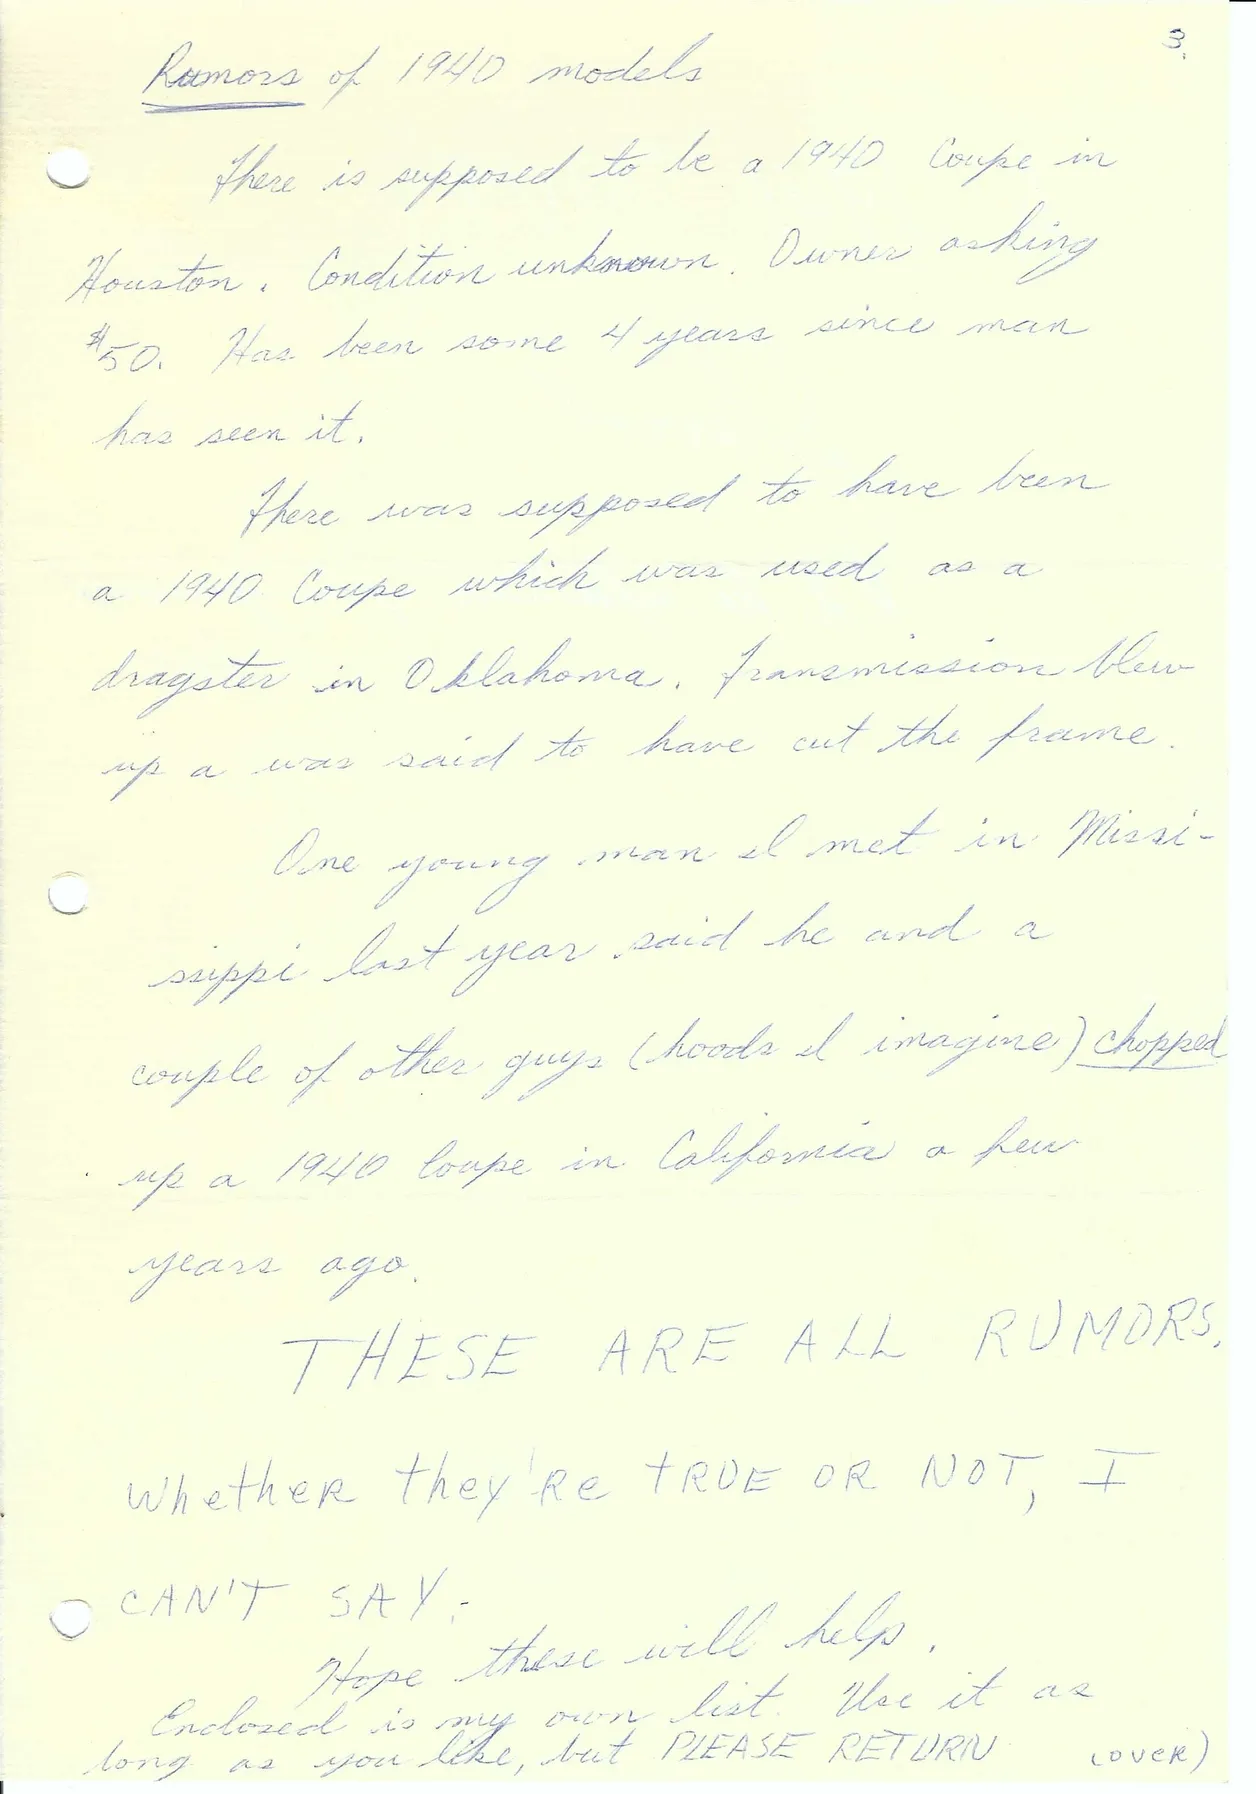 3.
Rumors of 1940 models
There is supposed to be a 1940 Coupe in
Houston. Condition unknown. Owner asking
$50. Has been some 4 years since man
has seen it.
There was supposed to have been
a 1940 Coupe which was used as a
dragster in Oklahoma. Transmission blew
up a was said to have cut the frame.
One young man I met in Missi-
ssippi last year said he and a
couple of other guys (hoods I imagine) chopped
up a 1940 Coupe in California a few
years ago.
THESE ARE ALL RUMORS.
WhetheR they're tRUE OR NOT, I
CAN'T SAY.
Hope these will help.
Enclosed is my own list. Use it as
long as you like, but PLEASE RETURN (OVER)